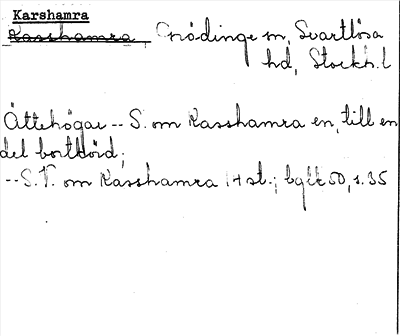 Karshamra
Kasshamra, Grödinge sn, Svartlösa
hd, Stockh. l
Ättehögar -- S. om Kasshamra en, till en
del bortkörd;
-- S.V. om Kasshamra 14 st.; bglt 50, s. 35